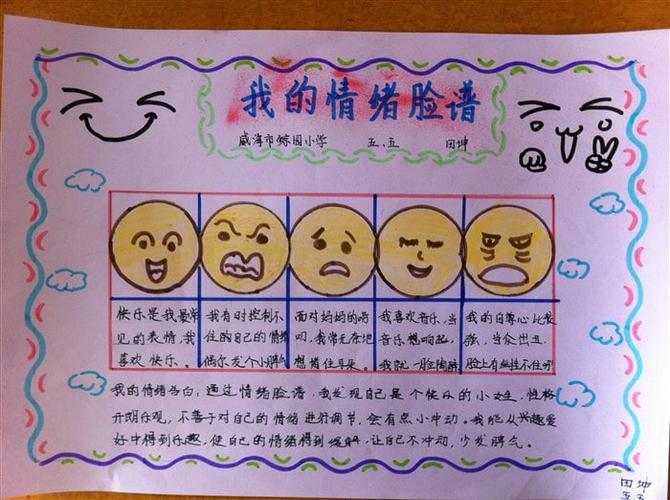 我的情绪脸谱
威海市鲸园小学 五、五 田坤
快乐是我最常
见的表情,我
喜欢快乐。
我有时控制不
住的自己的情绪
偶尔发个小脾气
面对妈妈的唠
叨,我常无奈地
想捂住耳朵。
我喜欢音乐,当
音乐想响起,
我就一脸陶醉
我的自尊心比较
强,当众出丑,
脸上有些挂不住
我的情绪告白:通过情绪脸谱,我发现自己是个快乐的小女生,性格
开朗乐观,不善于对自己的情绪进行调节,会有点小冲动。我能从兴趣爱
好中得到乐趣,使自己的情绪得到缓解,让自己不冲动,少发脾气。
田坤
五.五